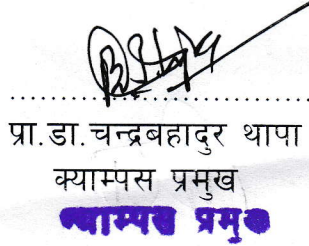 प्रा.डा.चन्द्रबहादुर थापा
क्याम्पस प्रमुख
क्याम्पस प्रमुख